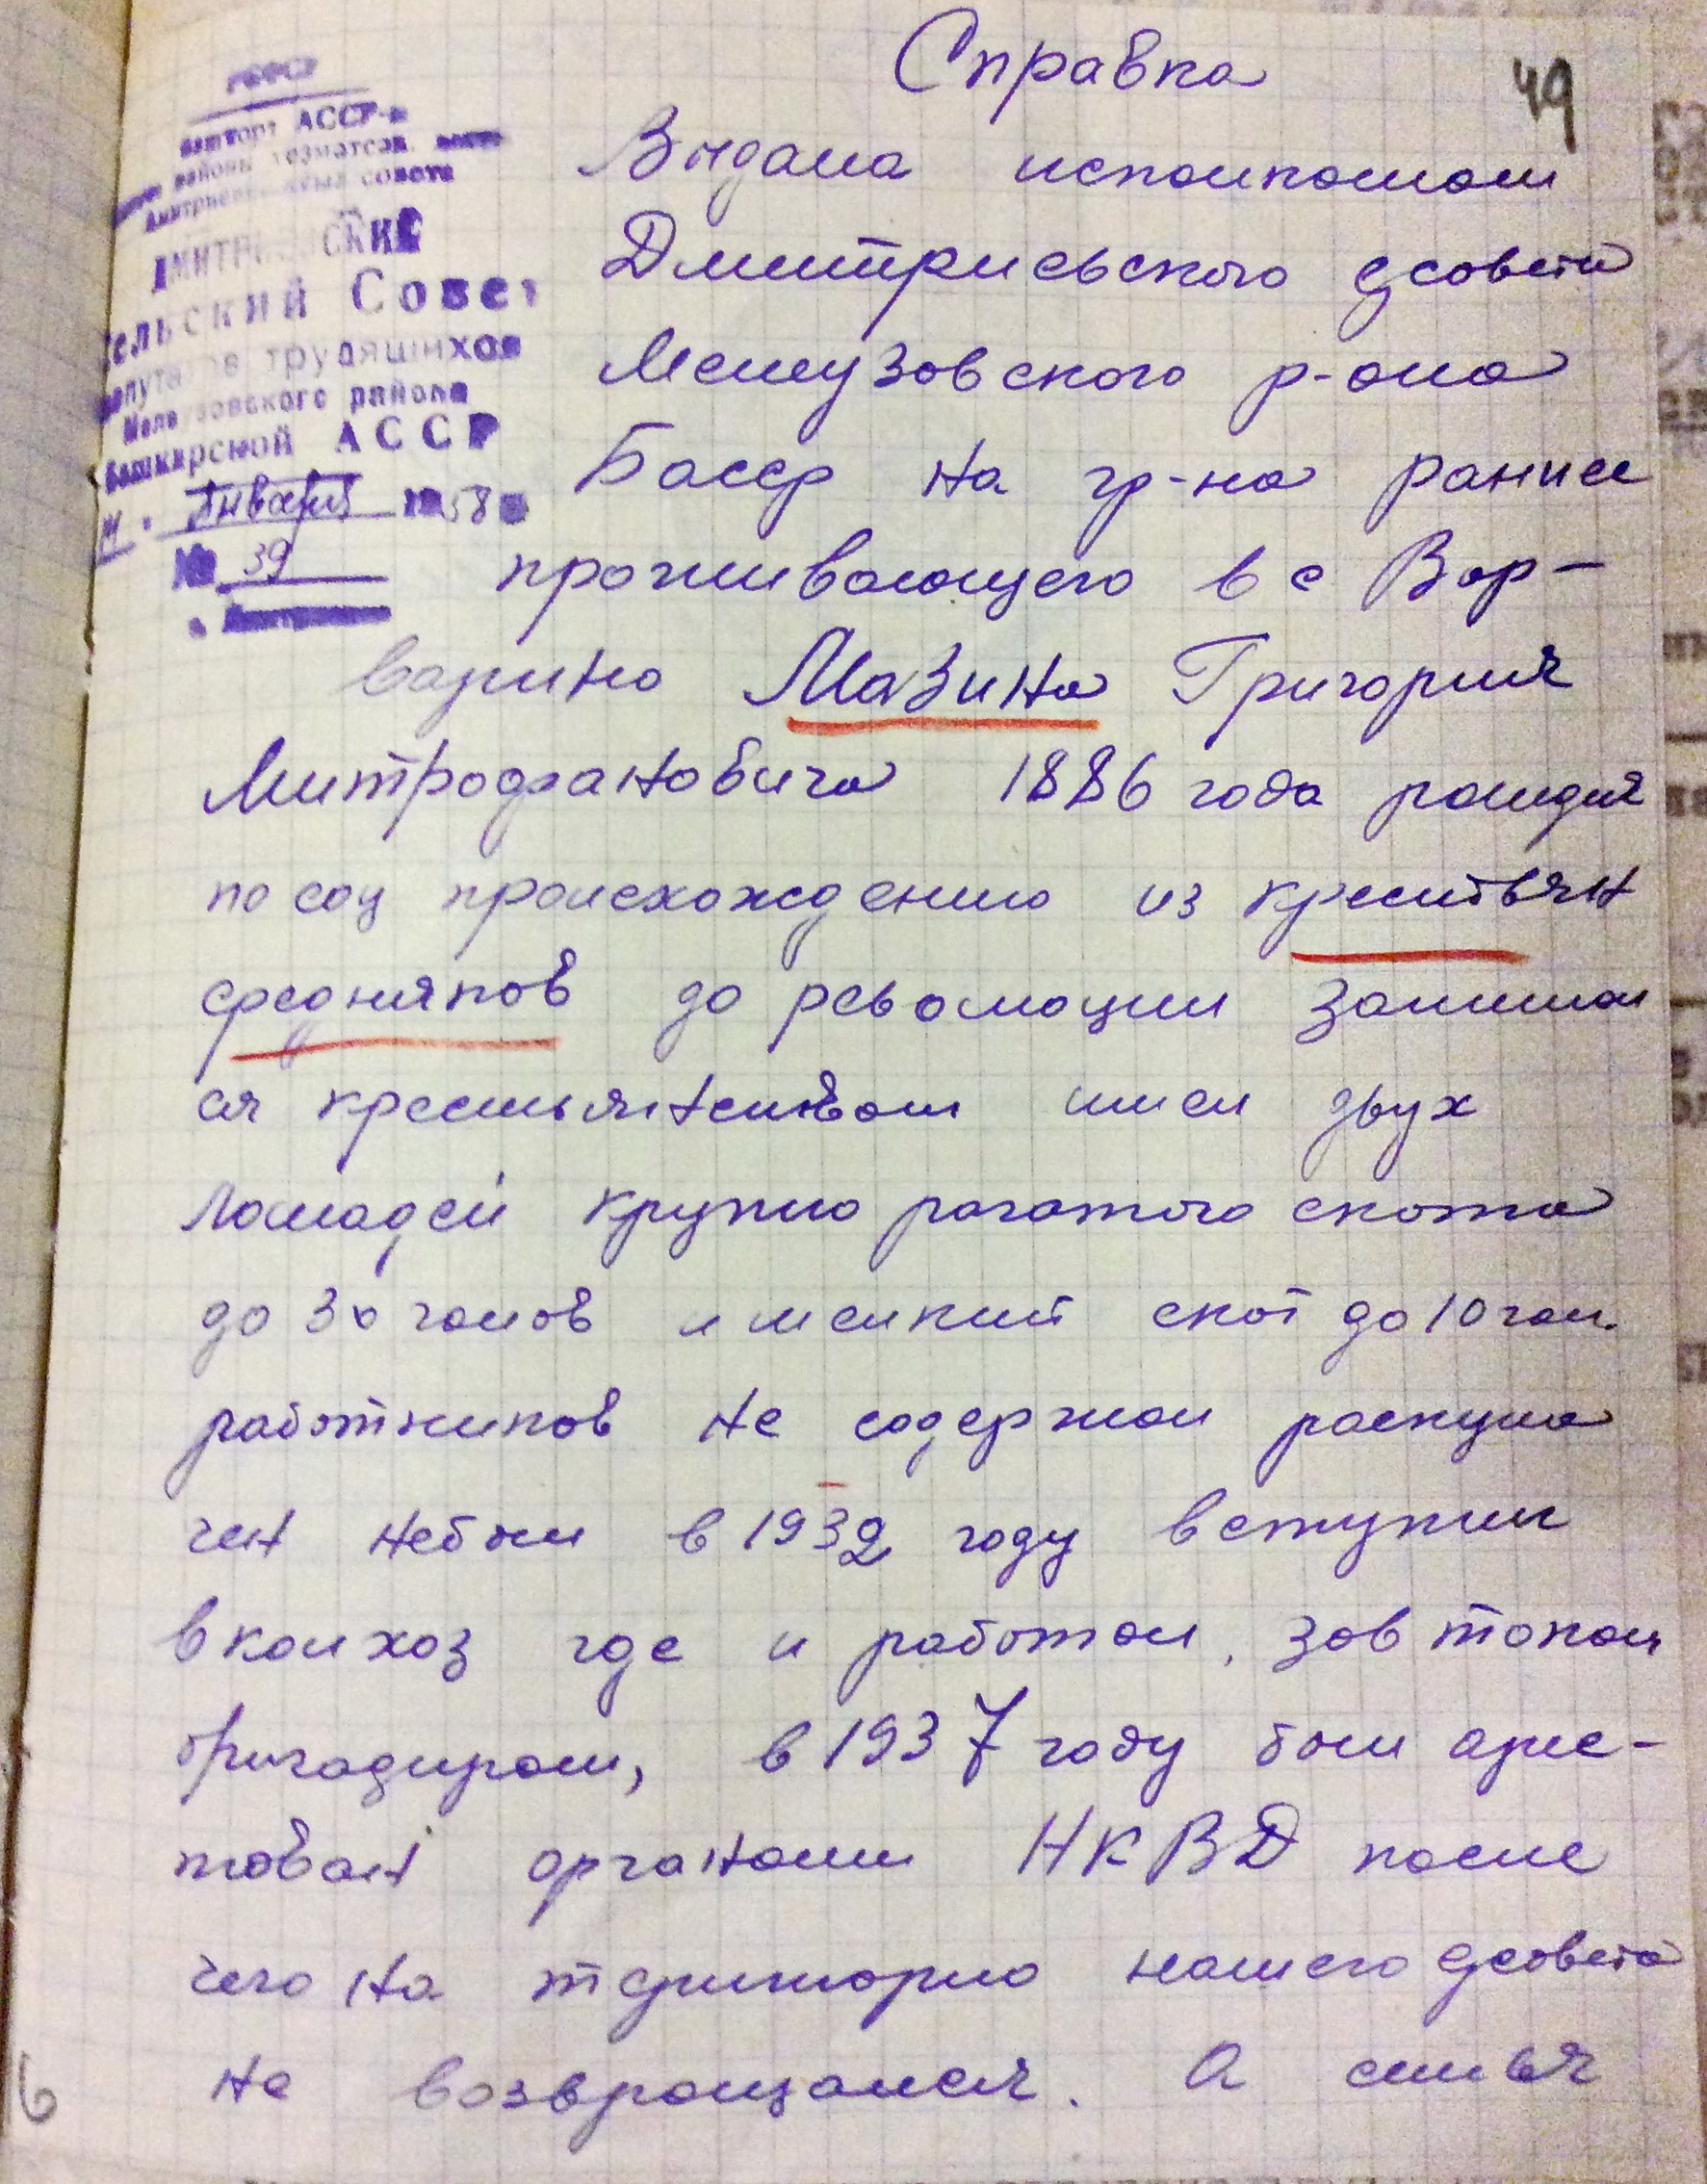 49
Справка
РСФСР
АССР-ы
районы
совета
ДМИТРИЕВСКИЙ
СЕЛЬСКИЙ Совет
депутатов трудящихся
Мелеузовского района
Башкирской АССР
января 1958
№ 39
Выдана исполкомом
Дмитриевского с/совета
Мелеузовского р-она
Басср на гр-на ранее
проживающего в с Вар-
варино Мазина Григория
Митрофановича 1886 года рождия
по соц происхождению из крестьвян
средняков до революции занимал
ся крестьянством имел двух
лошадей крупно рагатого скота
до 3х голов и мелкий скот до 10 гол.
работников не содержал раскула
чен небыл в 1932 году вступил
в колхоз где и работал, зовтоком
бригадиром, в 1937 году был арес-
тован органами НКВД после
чего на територию нашего с/совета
не возвращался. А семья
6